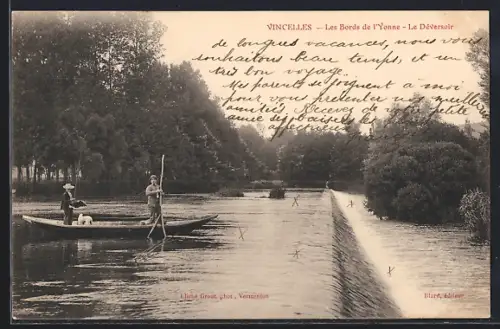 VINCELLES - Les Bords de l'Yonne - Le Déversoir
de longues vacances, nous vous
souhaitons beau temps, et un
très bon voyage.
Mes parents se joignent a moi
pour vous présenter nos meilleures
amitiés. Recevez de
baisers
affectueuse
Cliché Groat phot., Vermenton
éditeur